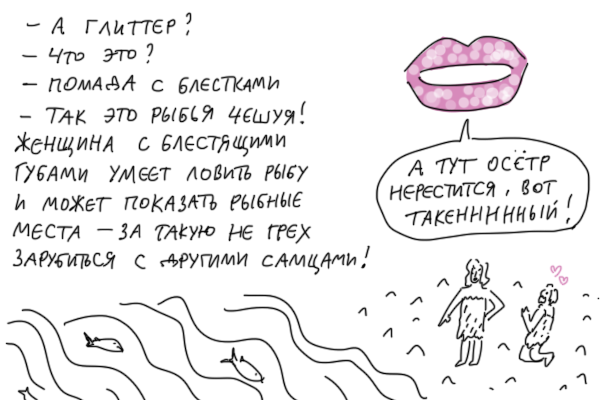 – А ГЛИТТЕР?
– ЧТО ЭТО?
– ПОМАДА С БЛЕСТКАМИ
– ТАК ЭТО РЫБЬЯ ЧЕШУЯ!
ЖЕНЩИНА С БЛЕСТЯЩИМИ
ГУБАМИ УМЕЕТ ЛОВИТЬ РЫБУ
И МОЖЕТ ПОКАЗАТЬ РЫБНЫЕ
МЕСТА – ЗА ТАКУЮ НЕ ГРЕХ
ЗАРУБИТЬСЯ С ДРУГИМИ САМЦАМИ!
А ТУТ ОСЁТР
НЕРЕСТИТСЯ, ВОТ
ТАКЕННННННЫЙ!